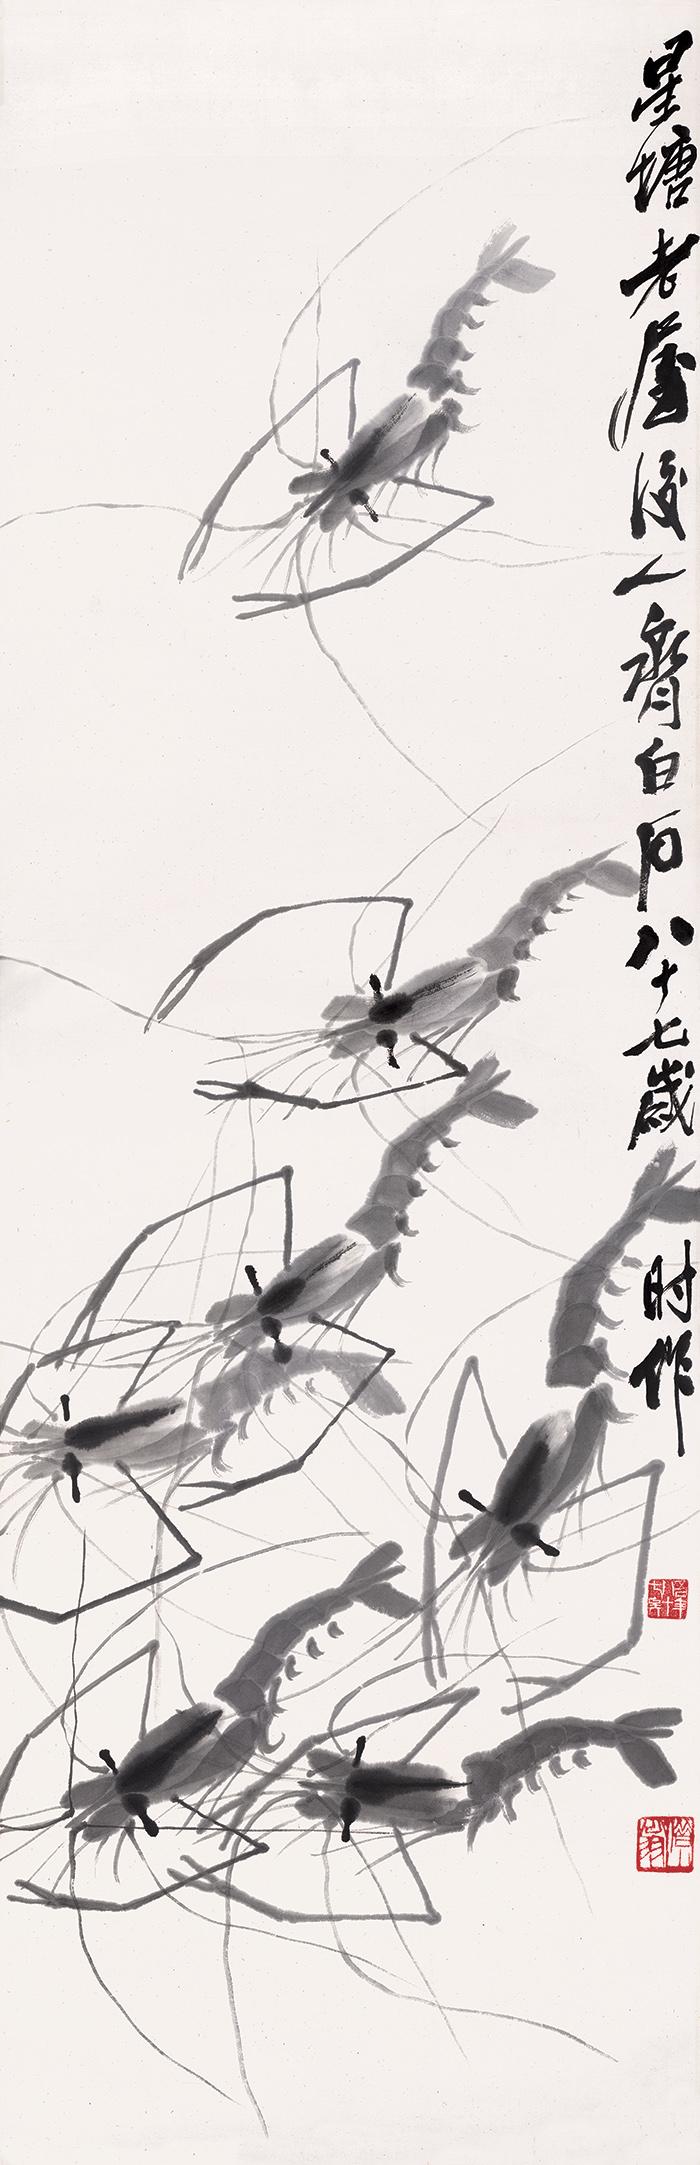 星塘老屋后人齊白石八十七歲时作